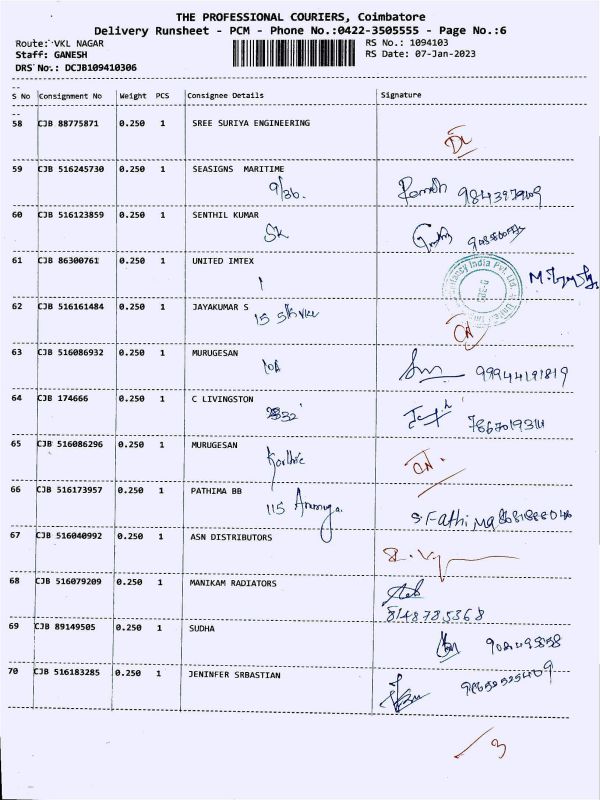 THE PROFESSIONAL COURIERS, Coimbatore
Delivery Runsheet - PCM - Phone No.:0422-3505555 - Page No.:6
Route: VKL NAGAR RS No.: 1094103
Staff: GANESH RS Date: 07-Jan-2023
DRS No.: DCJB109410306
--
S No Consignment No Weight PCS Consignee Details Signature
--
58 CJB 88775871 0.250 1 SREE SURIYA ENGINEERING
59 CJB 516245730 0.250 1 SEASIGNS MARITIME
9/36. Ramesh
60 CJB 516123859 0.250 1 SENTHIL KUMAR
SK
61 CJB 86300761 0.250 1 UNITED IMTEX
62 CJB 516161484 0.250 1 JAYAKUMAR S
15
63 CJB 516086932 0.250 1 MURUGESAN
99944191819
64 CJB 174666 0.250 1 C LIVINGSTON
32 7867019314
65 CJB 516086296 0.250 1 MURUGESAN
Karthic
66 CJB 516173957 0.250 1 PATHIMA BB
115
S. Fathima
67 CJB 516040992 0.250 1 ASN DISTRIBUTORS
68 CJB 516079209 0.250 1 MANIKAM RADIATORS
8148785368
69 CJB 89149505 0.250 1 SUDHA
70 CJB 516183285 0.250 1 JENINFER SRBASTIAN
3